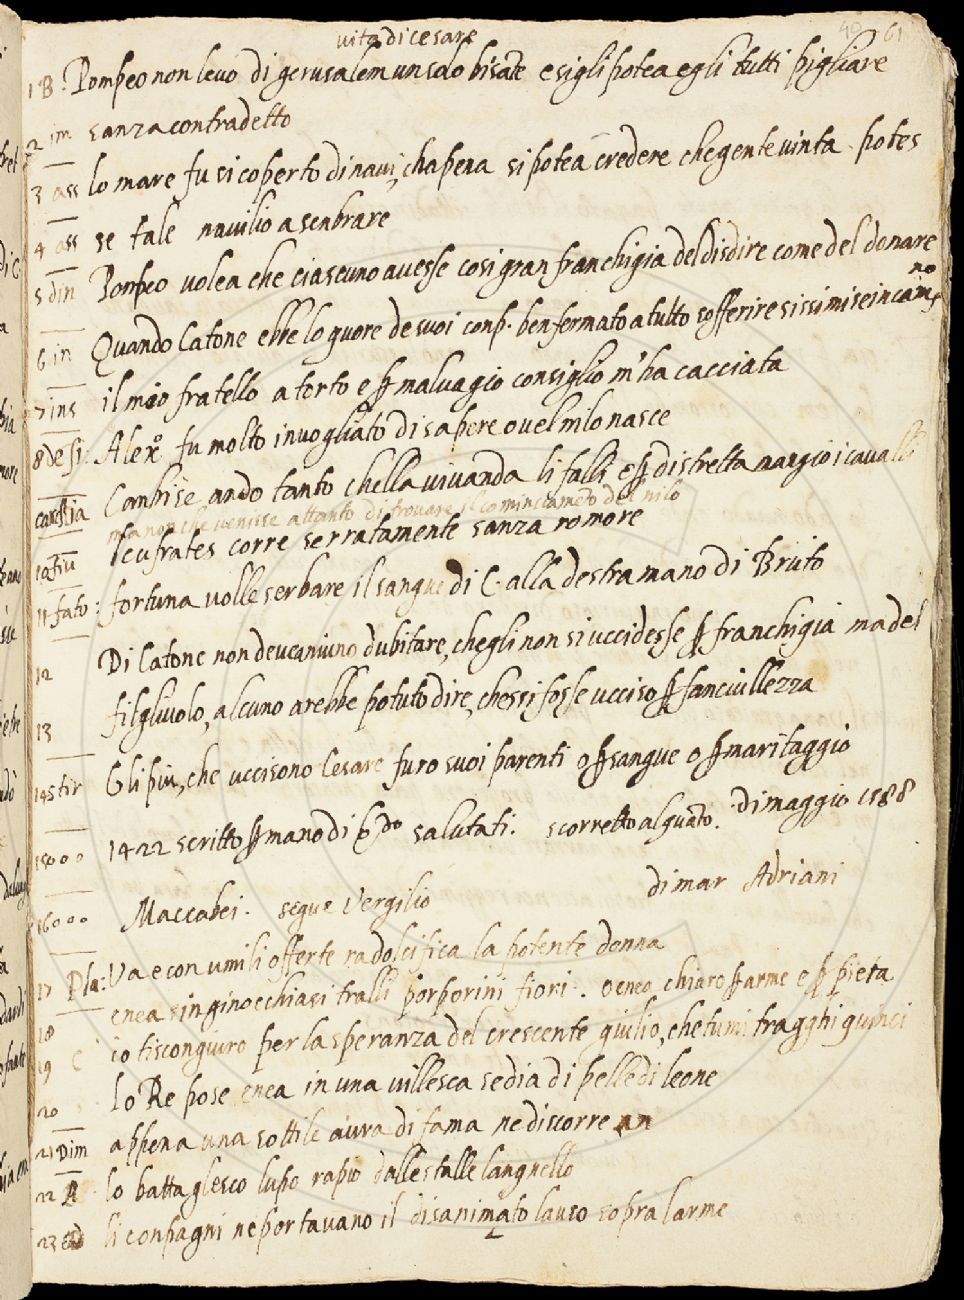 vita di cesare
40 61
1 B. Pompeo non levo di gerusalem un solo bisate e sigli potea egli tutti pigliare
2 im sanza contradetto
3 ass lo mare fu si coperto di navi, chapena si potea credere che gente vinta potes
4 ass se tale navilio asenbrare
5 din Pompeo volea che ciascuno avesse cosi gran franchigia del disdire come del donare
6 in Quando Catone ebbe lo quore de suoi conp. ben fermato a tutto sofferire sissi mise in camino
7 ins il mio fratello a torto e ꝑ malvagio consiglio m'ha cacciata
8 desi. Alexo fu molto invogliato di sapere ove l nilo nasce
carestia Cambise ando tanto chella vivanda li falli e ꝑ distretta mangio i cavalli
ma non che venisse attanto di trovare il cominciameto del nilo
10 fiu leufrates corre serratamente sanza romore
11 fato: fortuna volle serbare il sangue di C. alla destra mano di Bruto
12 Di Catone non deve aniuno dubitare, chegli non si uccidesse ꝑ franchigia ma del
13 filgluolo, alcuno arebbe potuto dire, chessi fosse ucciso ꝑ fanciullezza
14 stir Gli piu, che uccisono Cesare furo suoi parenti o ꝑ sangue o ꝑ maritaggio
15000 1422 scritto ꝑ mano di salutati. scorretto alquato. di maggio 1588
di mar Adriani
16000 Maccabei. segue Vergilio
17 Pla: Va e con umili offerte radolcifica la potente donna
18 enea singinocchiasi tralli porporini fiori. o eneo chiaro ꝑ arme e ꝑ pieta
19 C io tisconguiro per la speranza del crescente giulio, che tumi tragghi quinci
20 lo Re pose enea in una villesca sedia di pelle di leone
21 Dim appena una sottile aura di fama ne discorre an
22 R lo battaglesco lupo rapio dalle stalle langnello
23 li conpagni ne portavano il disanimato lauso sopra larme